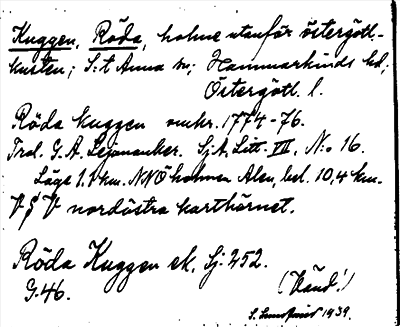 Kuggen, Röda, holme utanför östergötl-
kusten; S:t Anna sn; Hammarkinds hd;
Östergötl. l.
Röda Kuggen omkr. 1774-76.
Trol. G. A. Leijonancker. Sj. A. Litt. VII, N:o 16.
Läge 1.1 km. NNÖ holmen Alen, bel. 10,4 km.
V § V nordöstra karthörnet.
Röda Kuggen ek. Sj: 252.
G. 46.
(Känd!)
S. 1939.